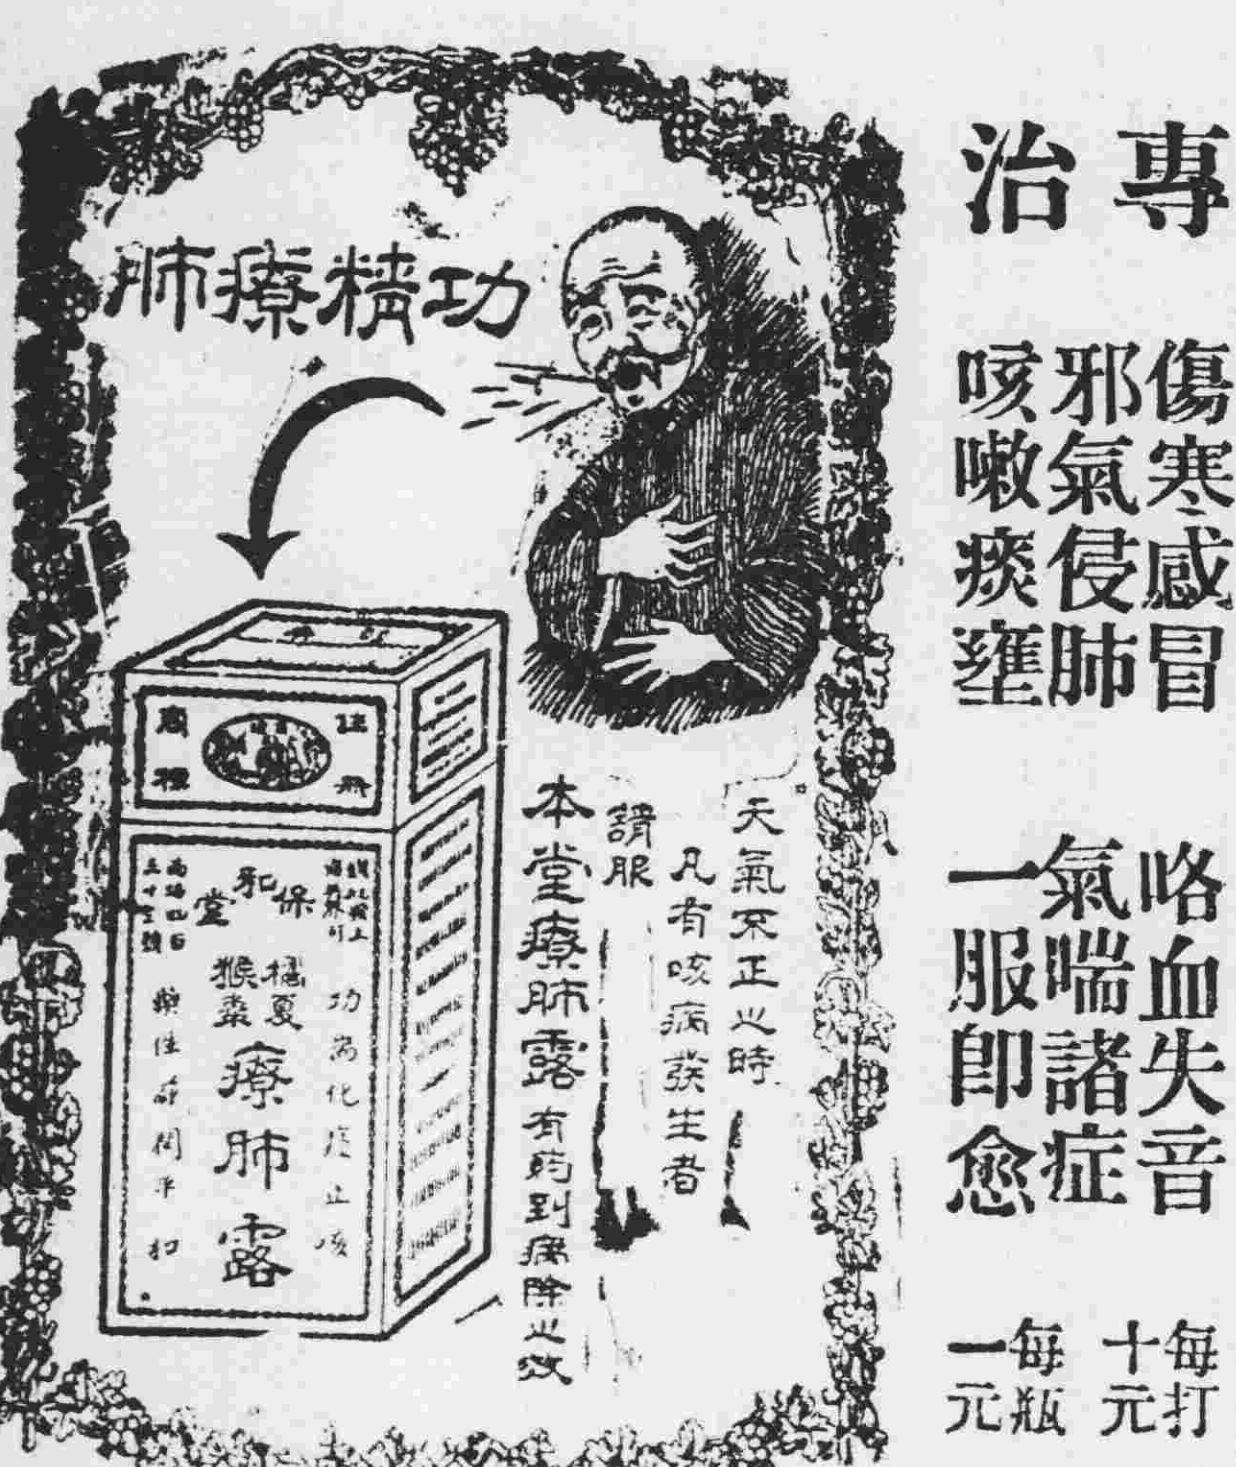 專治
傷寒感冒
邪氣侵肺
咳嗽痰壅
咯血失音
氣喘諸症
一服即愈
每打
十元
每瓶
一元
功精療肺
天氣不正之時
凡有咳病發生者
請服
本堂療肺露有药到病除之效
註冊
商標
保和堂
橘夏
猴棗
療肺露
功為化痰止咳